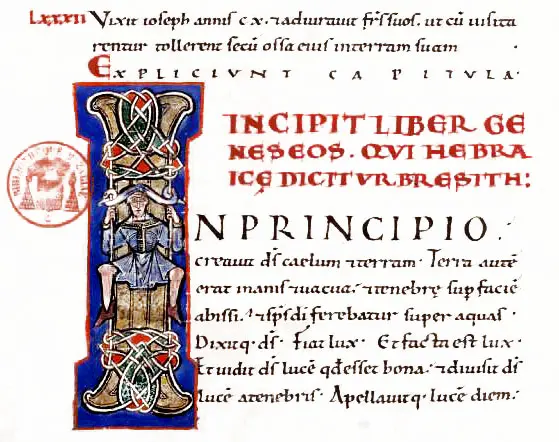 Lxxxii Vixit ioseph annis c x. & adiurauit fr̄s suos. ut cū uisita
rentur tollerent secū ossa eius interram suam.
EXPLICIUNT CAPITULA.
INCIPIT LIBER GE
NESEOS. QVI HEBRA
ICĘ DICITVR BRESITH:
IN PRINCIPIO.
creauit d̄s caelum & terram. Terra autē
erat inanis & uacua. & tenebrę sup̄ faciē
abissi. & sp̄s dī ferebatur super aquas.
Dixitq. d̄s. Fiat lux. Et facta est lux.
Et uidit d̄s lucē qd̄ esset bona. & diuisit d̄s
lucē atenebris. Apellauitq. lucē diem.